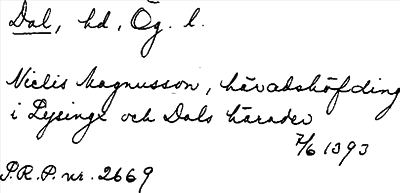 Dal, hd, Ög. l.
Niclis Magnusson, häradshöfding
i Lysinge och Dals härader
7/6 1393
P.R.P. nr. 2669